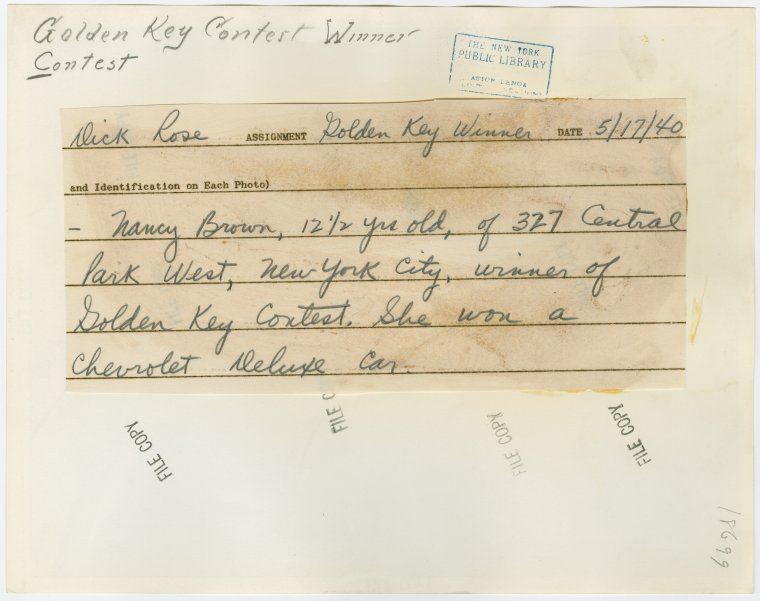 Golden Key Contest Winner
Contest
THE NEW YORK
PUBLIC LIBRARY
ASTOR LENOX
Dick Rose ASSIGNMENT Golden Key Winner DATE 5/17/40
and Identification on Each Photo)
- Nancy Brown, 12 1/2 yrs old, of 327 Central
Park West, New York City, winner of
Golden Key Contest. She won a
Chevrolet Deluxe Car.
FILE COPY
FILE COPY
FILE COPY
FILE COPY